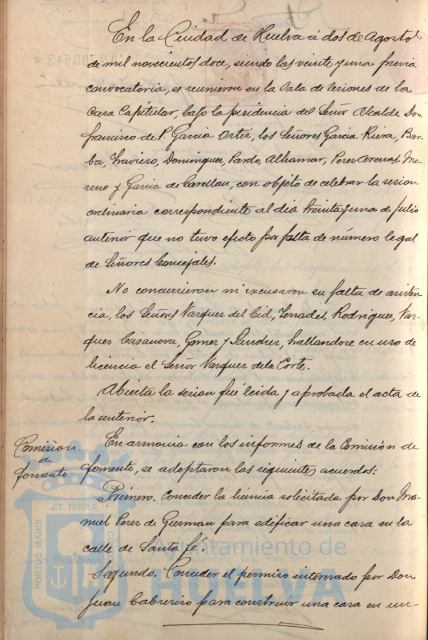 En la Ciudad de Huelva á dos de Agosto
de mil novecientos doce, siendo las veinte y una previa
convocatoria, se reunieron en la Sala de Sesiones de la
Casa Capitular, bajo la presidencia del Señor Alcalde Don
Francisco de P. García Ortiz, los Señores García Riera, Bar-
ba, Traviero, Dominguez, Pardo, Alhamar, Perez Arenas, Mo-
reno y Garcia de Castellan, con objeto de celebrar la sesion
ordinaria correspondiente al dia treinta y uno de Julio
anterior que no tuvo efecto por falta de número legal
de Señores Concejales.
No concurrieron ni excusaron su falta de asisten-
cia, los Señores Vazquez del Cid, Terrades, Rodriguez, Vaz-
quez Casanova, Gomez y Sanchez, hallandose en uso de
licencia el Señor Vazquez de la Corte.
Abierta la sesion fué leida y aprobada el acta de
la anterior.
Comision
de
Fomento
En armonia con los informes de la Comisión de
Fomento, se adoptaron los siguientes acuerdos:
Primero. Conceder la licencia solicitada por Don Ma-
nuel Perez de Guzman para edificar una casa en la
calle de Santa fé.
Segundo. Conceder el permiso interesado por Don
Juan Cabrerizo para construir una casa en un-
PORTUS MARIS
ET TERRAE
Ayuntamiento de
HUELVA